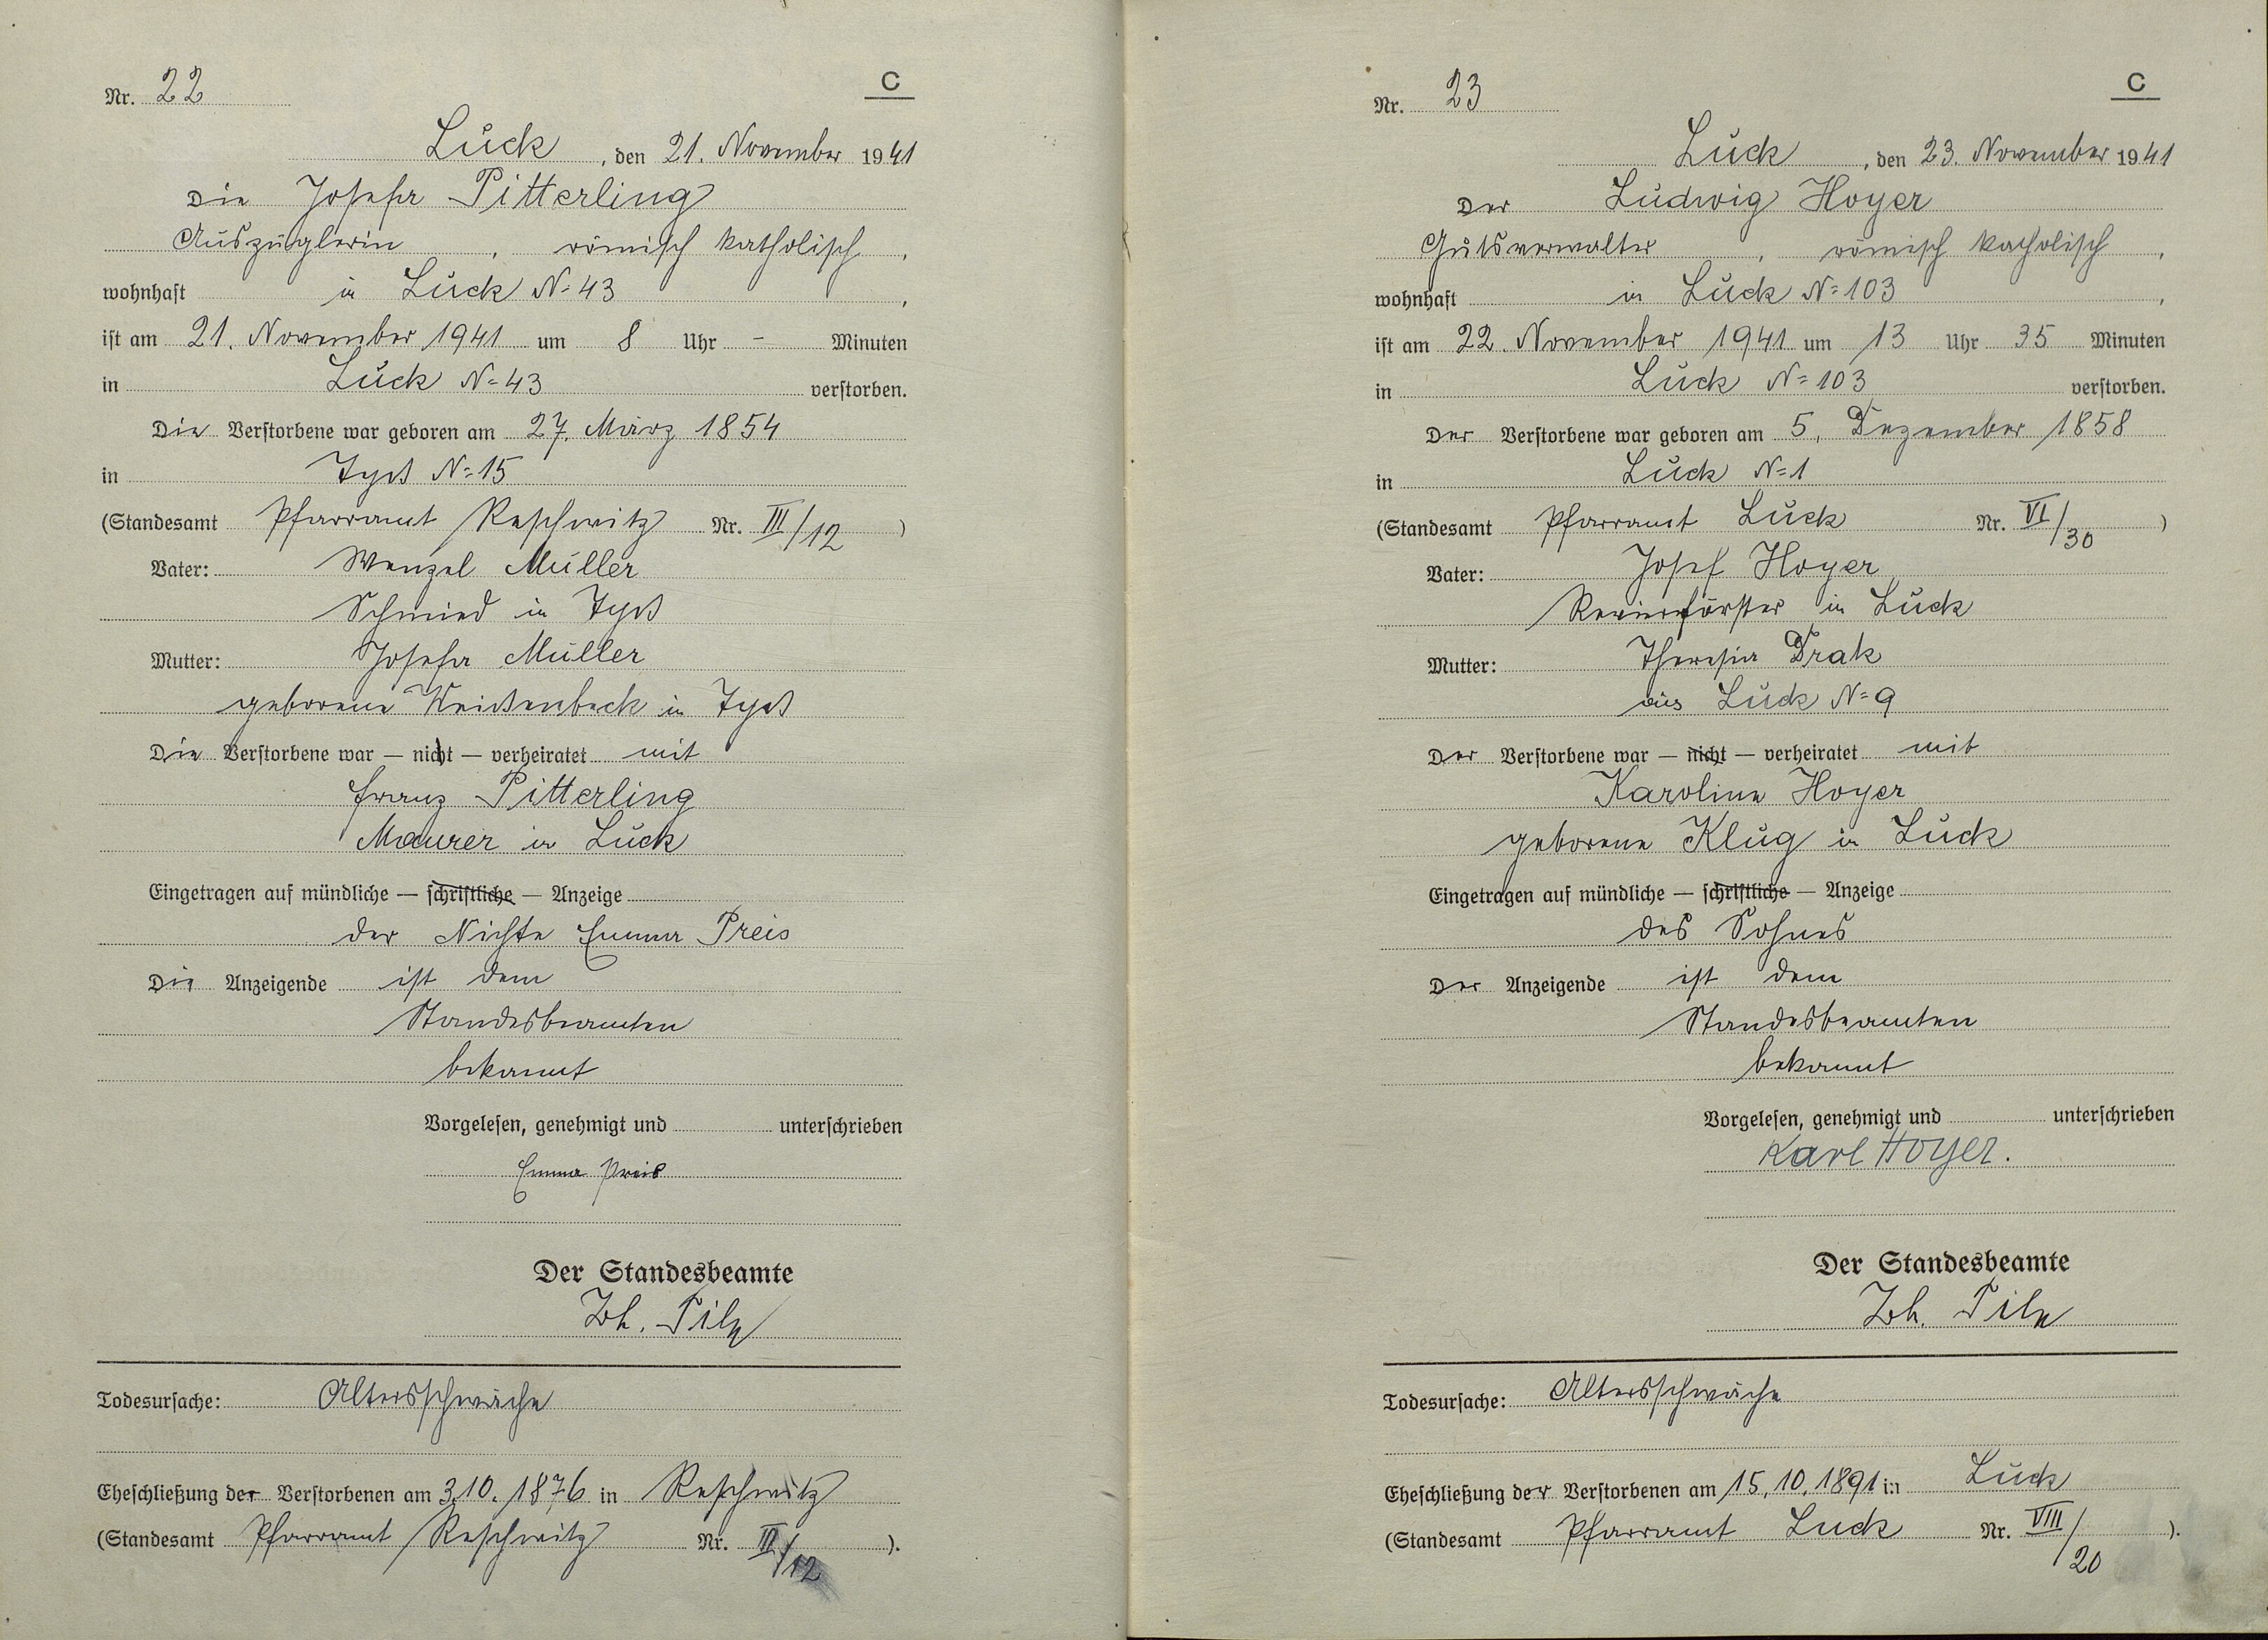 Nr. 22
C
Luck, den 21. November 1941
Die Josefa Pitterling
Auszüglerin, römisch katholisch,
wohnhaft in Luck N= 43,
ist am 21. November 1941 um 8 Uhr - Minuten
in Luck N= 43 verstorben.
Die Verstorbene war geboren am 27. März 1854
in Tyß N= 15
(Standesamt Pfarramt Reschwitz Nr. III/12)
Vater: Wenzel Müller
Schmied in Tyß
Mutter: Josefa Müller
geborene Weißenbeck in Tyß
Die Verstorbene war — nicht — verheiratet mit
Franz Pitterling
Maurer in Luck
Eingetragen auf mündliche — schriftliche — Anzeige
der Nichte Emma Preis
Die Anzeigende ist dem
Standesbeamten
bekannt
Vorgelesen, genehmigt und unterschrieben
Emma Preis
Der Standesbeamte
Joh. Pilz
Todesursache: Altersschwäche
Eheschließung der Verstorbenen am 3.10.1876 in Reschwitz
(Standesamt Pfarramt Reschwitz Nr. III/12).
Nr. 23
C
Luck, den 23. November 1941
Der Ludwig Hoyer
Gutsverwalter, römisch katholisch,
wohnhaft in Luck N= 103,
ist am 22. November 1941 um 13 Uhr 35 Minuten
in Luck N= 103 verstorben.
Der Verstorbene war geboren am 5. Dezember 1858
in Luck N= 1
(Standesamt Pfarramt Luck Nr. VI/30)
Vater: Josef Hoyer
Revierförster in Luck
Mutter: Theresia Drak
aus Luck N= 9
Der Verstorbene war — nicht — verheiratet mit
Karoline Hoyer
geborene Klug in Luck
Eingetragen auf mündliche — schriftliche — Anzeige
des Sohnes
Der Anzeigende ist dem
Standesbeamten
bekannt
Vorgelesen, genehmigt und unterschrieben
Karl Hoyer.
Der Standesbeamte
Joh. Pilz
Todesursache: Altersschwäche
Eheschließung der Verstorbenen am 15.10.1891 in Luck
(Standesamt Pfarramt Luck Nr. VIII/20).